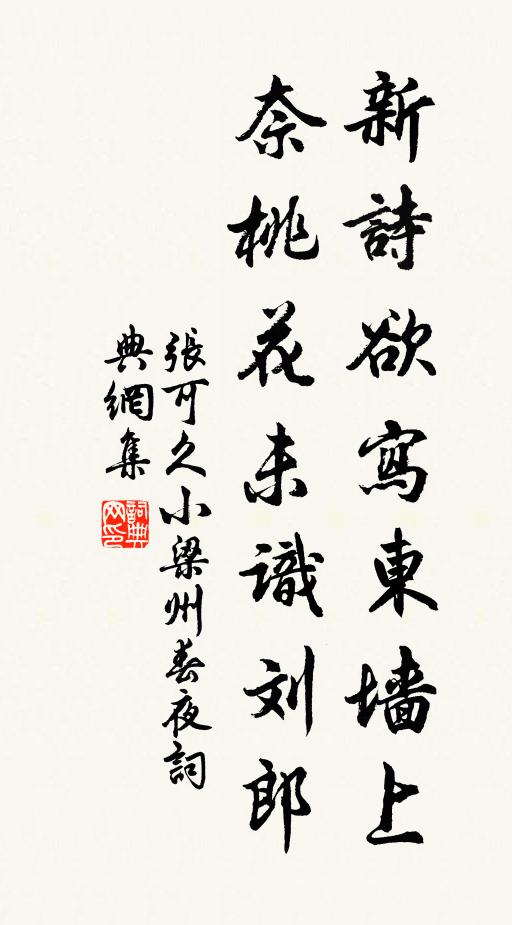 新詩欲寫東墙上
奈桃花未識刘郎
張可久小梁州春夜詞
典網集
詞典网印